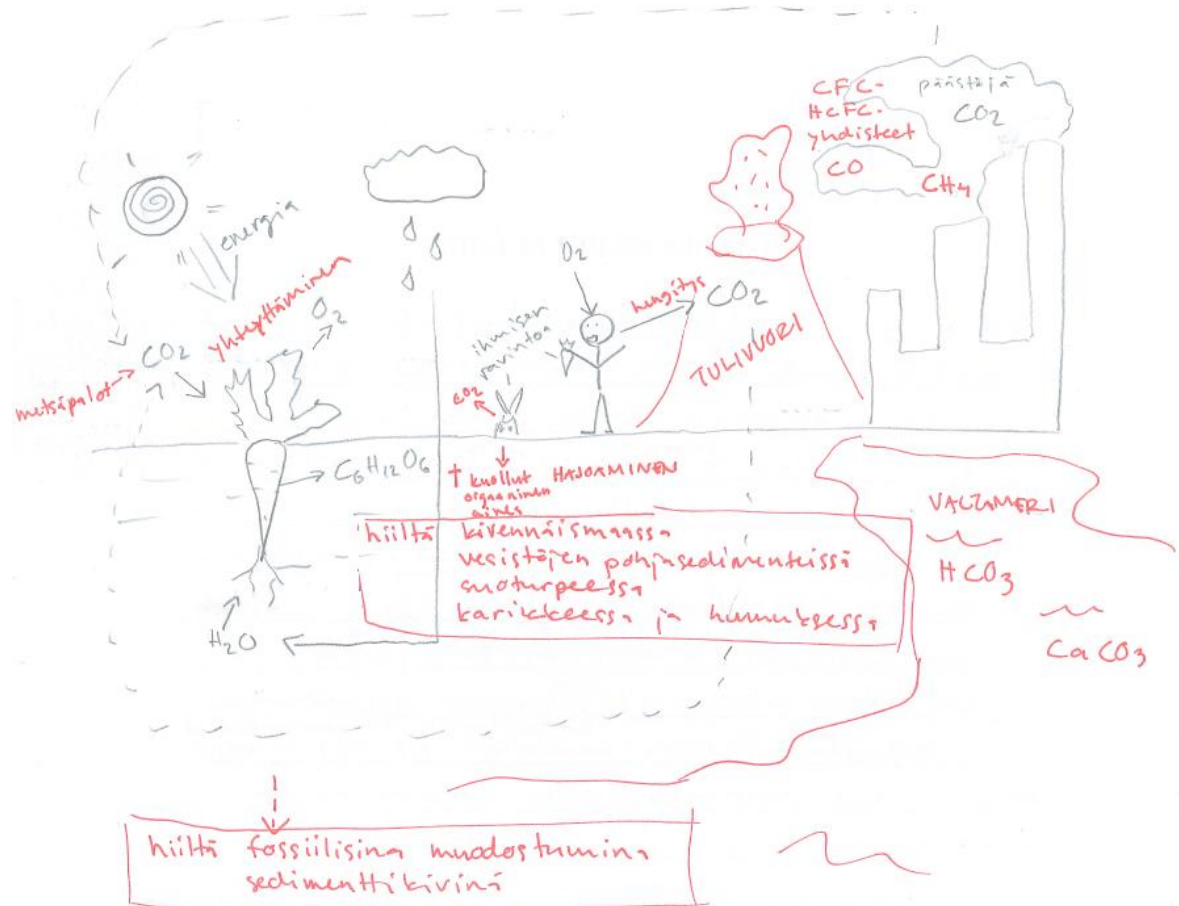 CFC-
HCFC-
yhdisteet
päästöjä
CO2
CO
CH4
energia
yhteyttäminen
O2
CO2
metsäpalot
C6H12O6
H2O
ihmisen
ravintoa
CO2
O2
hengitys
CO2
TULIVUORI
† kuollut
orgaaninen
aines
HAJOAMINEN
hiiltä kivennäismaassa
vesistöjen pohjasedimenteissä
suoturpeessa
karikkeessa ja humuksessa
VALTAMERI
HCO3
CaCO3
hiiltä fossiilisina muodostumina
sedimenttikivinä